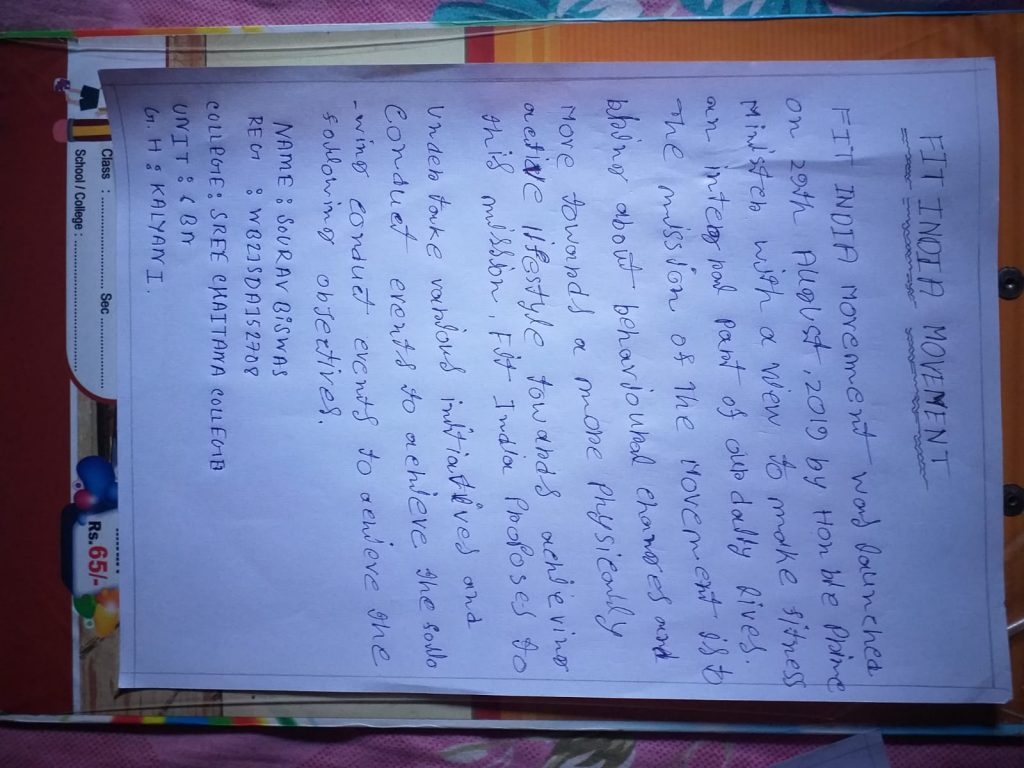 FIT INDIA MOVEMENT
FIT INDIA Movement was launched
on 29th August, 2019 by Hon'ble Prime
Minister with a view to make fitness
an integral part of our daily lives.
The mission of the Movement is to
bring about behavioural changes and
Move towards a more physically
active lifestyle towards achieving
this mission, Fit India Proposes to
Undertake various initiatives and
Conduct events to achieve the follo
-wing conduct events to achieve the
following objectives.
NAME : SOURAV BISWAS
REG : WB21SDA152708
COLLEGE: SREE CHAITANA COLLEGE
UNIT :
G. H : KALYANI.
Class : Sec
School / College :
Rs.65/-